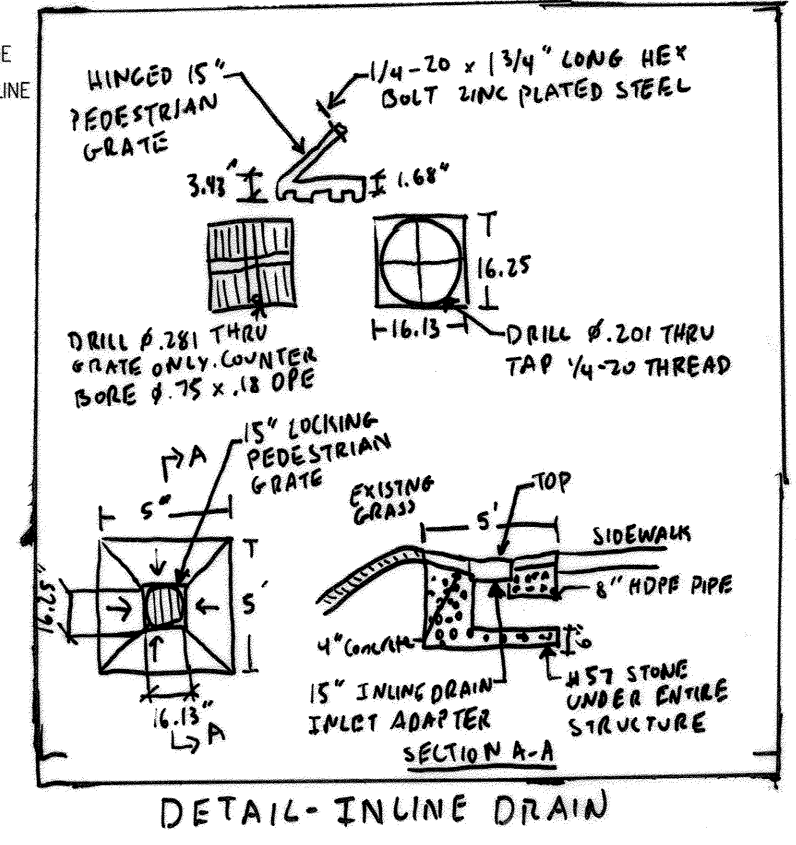 E
LINE
HINGED 15"
PEDESTRIAN
GRATE
1/4-20 x 1 3/4" LONG HEX
BOLT ZINC PLATED STEEL
3.43"
1.68"
16.25
16.13
DRILL Ø.281 THRU
GRATE ONLY. COUNTER
BORE Ø.75 x .18 OPE
DRILL Ø.201 THRU
TAP 1/4-20 THREAD
A
15" LOCKING
PEDESTRIAN
GRATE
5"
5'
16.25"
16.13"
A
EXISTNG
GRASS
TOP
5'
SIDEWALK
8" HDPE PIPE
4" Concrete
6"
15" INLINE DRAIN
INLET ADAPTER
#57 STONE
UNDER ENTIRE
STRUCTURE
SECTION A-A
DETAIL- INLINE DRAIN